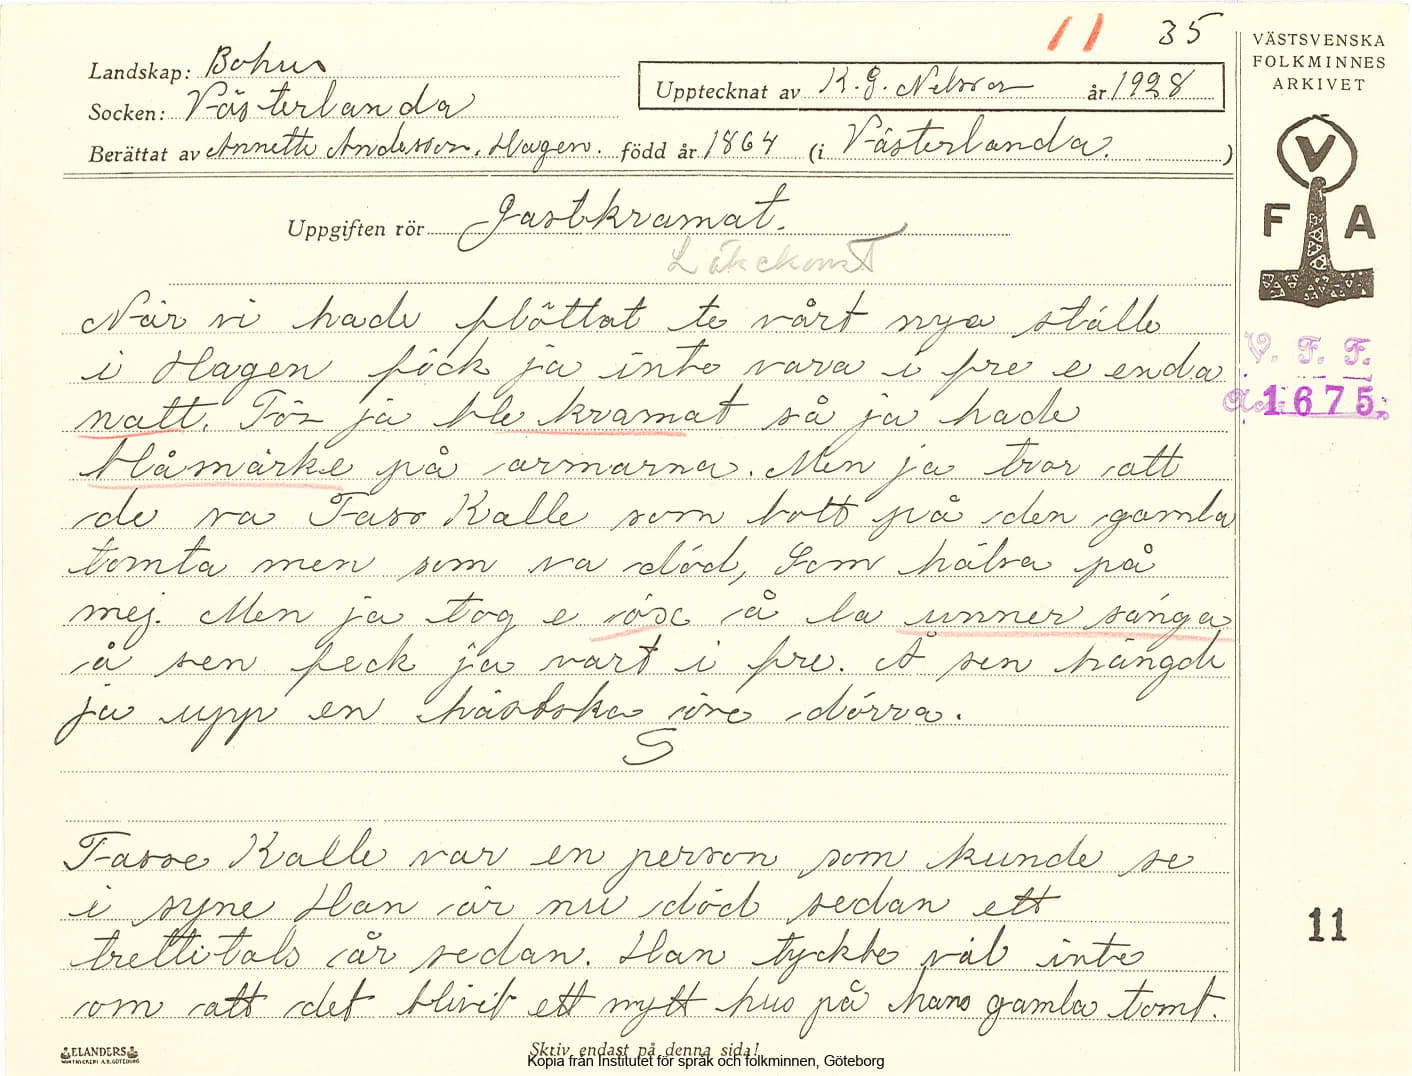 11 35
Landskap: Bohus
Socken: Västerlanda
Upptecknat av K. G. Nelson år 1928
Berättat av Annette Andersson, Hagen. född år 1864 (i Västerlanda. )
Uppgiften rör Gastkramat.
Läkekonst
När vi hade flöttat te vårt nya ställe
i Hagen föck ja inte vara i fre e enda
natt. För ja ble kramat så ja hade
blåmärke på armarna. Men ja tror att
de va Fass Kalle som bott på den gamla
tomta men som va död, Som hälsa på
mej. Men ja tog e öx å la unner sänga
å sen feck ja vart i fre. Å sen hängde
ja upp en hästsko öve dörra.
S
Fasse Kalle var en person som kunde se
i syne Han är nu död sedan ett
trettitals år sedan. Han tyckte väl inte
om att det blivit ett nytt hus på hans gamla tomt.
VÄSTSVENSKA
FOLKMINNES
ARKIVET
V
F A
V. F. F.
1675
11
ELANDERS
Skriv endast på denna sida!
Kopia från Institutet för språk och folkminnen, Göteborg